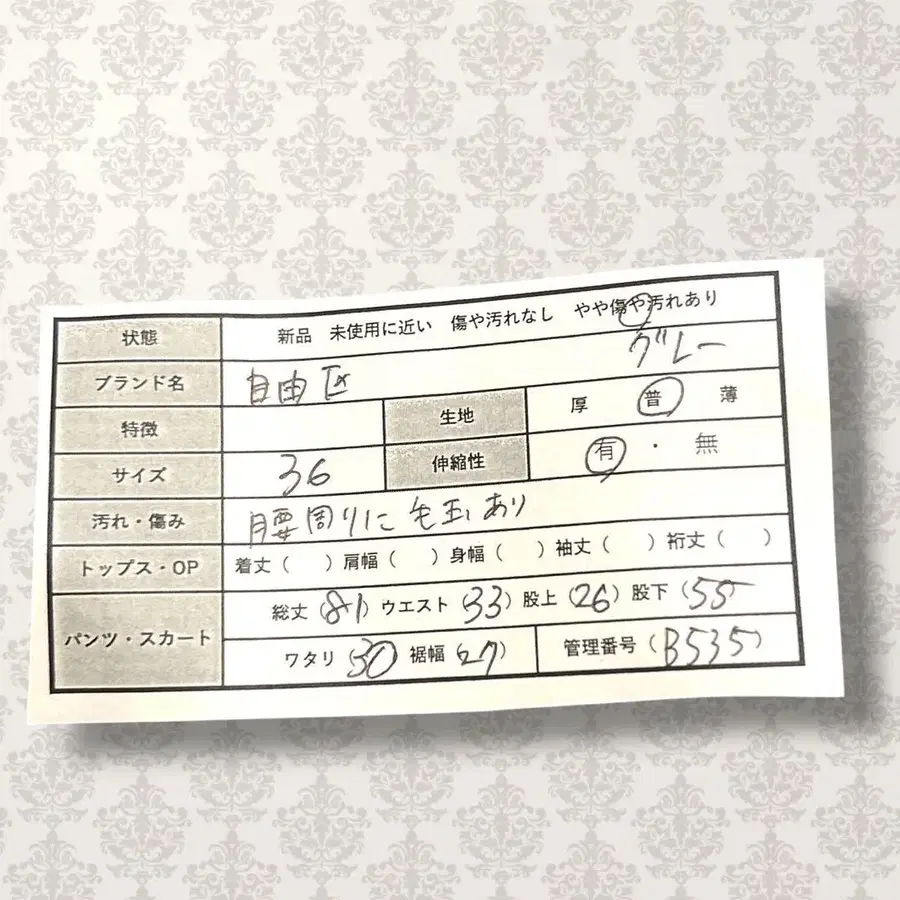 状態 新品 未使用に近い 傷や汚れなし やや傷や汚れあり
ブランド名 自由区 グレー
特徴 生地 厚 普 薄
サイズ 36 伸縮性 有・無
汚れ・傷み 腰周りに毛玉あり
トップス・OP 着丈( )肩幅( )身幅( )袖丈( )裄丈( )
パンツ・スカート 総丈(81)ウエスト(33)股上(26)股下(55)
ワタリ(30)裾幅(27) 管理番号(B535)